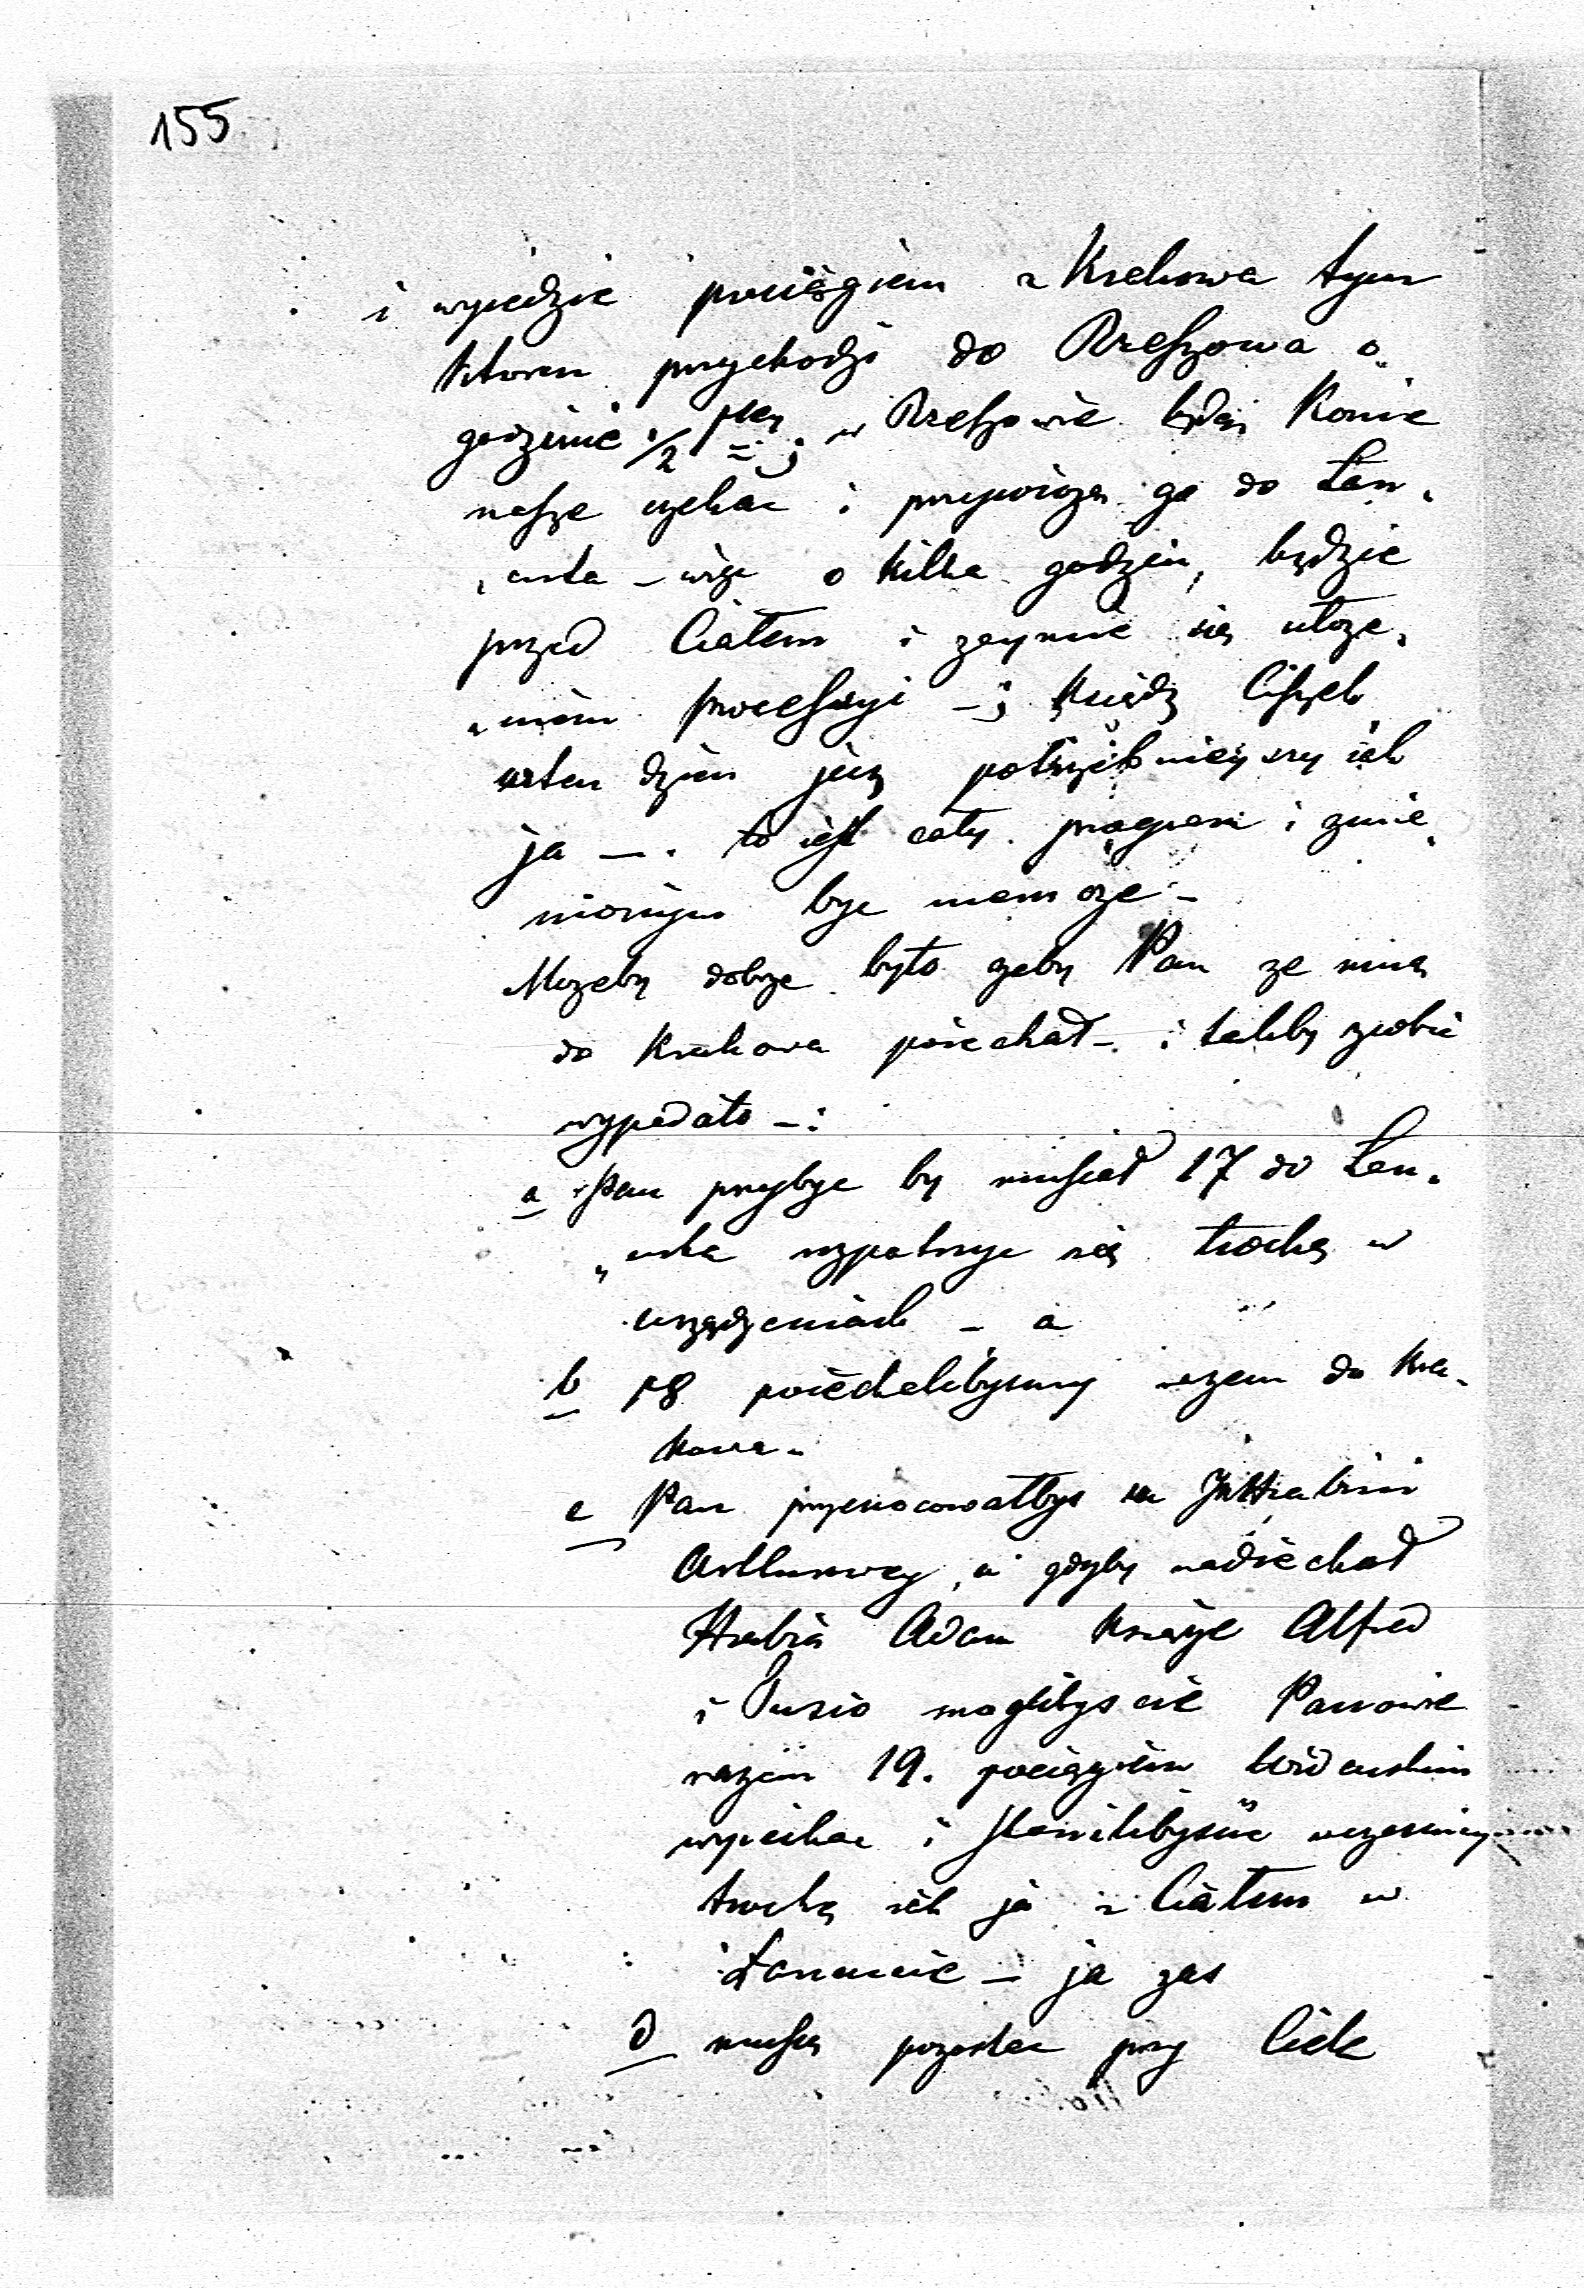 155
i wyiedzie pociągiem z Krakowa tym
ktoren przychodzi do Rzeszowa o
godzinie ½ ; w Rzeszowie będą Konie
nasze czekac i przywiozą go do Łan„
„cuta – więc o kilka godzin, będzie
przed Ciałem i zaymie się ułoże„
„niem procesſyi – ; Ksiądz Ciszek
wten dzien jest potrzebnieyszy iak
ja – . to iest cały program i zmie„
nionym byc niemoże –
Mozeby dobrze było zeby Pan ze mną
do Krakowa poiechał – i takby zrobic
wypadało – :
a Pan przybyc by musiał 17 do Łan„
„cuta rozpatrzyc się trochę w
urządzeniach – a
b 18 poiechalibysmy razem do Kra„
kowa –
c Pan przenocowałbys u JWHrabini
Arthurowey, a gdyby nadiechał
Hrabia Adam Książe Alfred
i Jusio moglibyscie Panowie
razem 19. pociągiem Widenskim
wyiechac i stanelibyscie wczesniey
trochę iak ja z Ciałem w
Łancucie – ja zas
d muszę pozostac przy Ciele